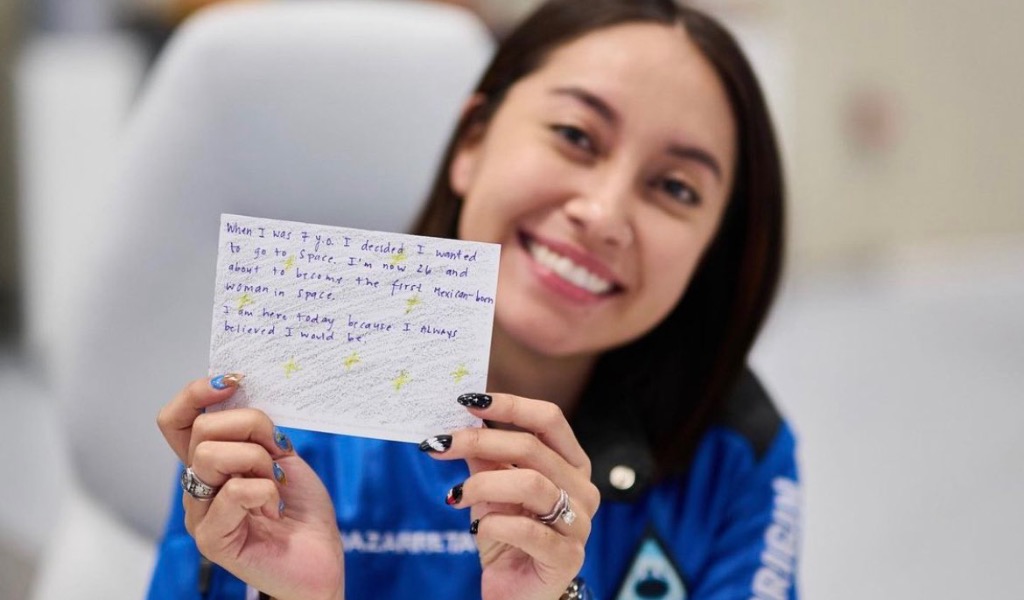 When I was 7 y.o. I decided I wanted
to go to space. I'm now 26 and
about to become the first Mexican-born
woman in space.
I am here today because I ALWAYS
believed I would be.
AZARRETA
ORIGIN